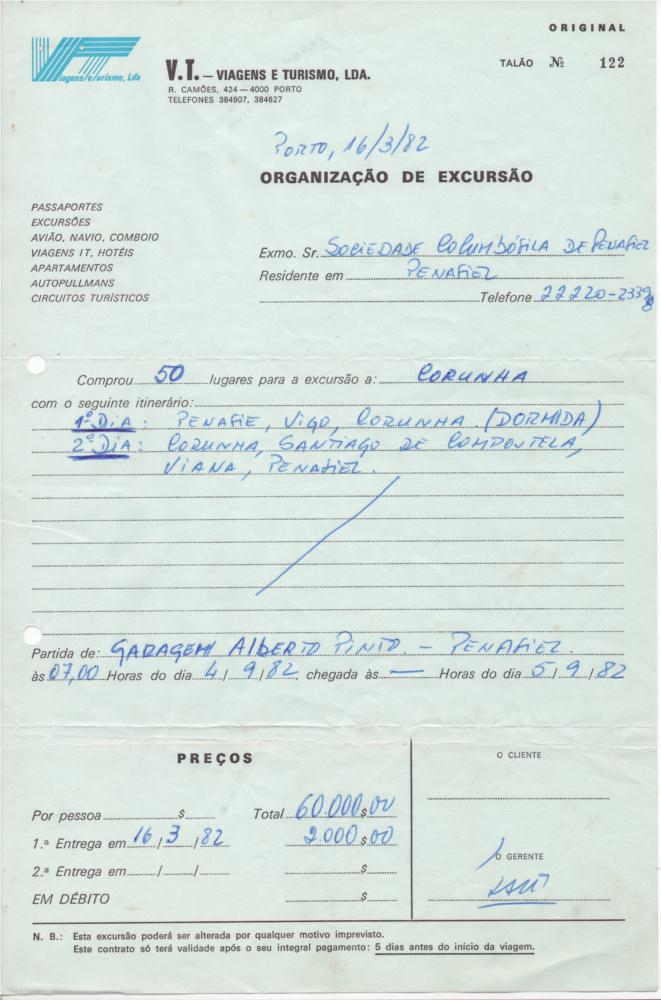 ORIGINAL
VT
Viagens e Turismo, Lda
V.T. — VIAGENS E TURISMO, LDA.
R. CAMÕES, 424 — 4000 PORTO
TELEFONES 384907, 384627
TALÃO Nº 122
PORTO, 16/3/82
ORGANIZAÇÃO DE EXCURSÃO
PASSAPORTES
EXCURSÕES
AVIÃO, NAVIO, COMBOIO
VIAGENS IT, HOTÉIS
APARTAMENTOS
AUTOPULLMANS
CIRCUITOS TURÍSTICOS
Exmo. Sr. SOCIEDADE COLUMBÓFILA DE PENAFIEL
Residente em PENAFIEL
Telefone 22220-23398
Comprou 50 lugares para a excursão a: CORUNHA
com o seguinte itinerário:
1º DIA: PENAFIE, VIGO, CORUNHA (DORMIDA)
2º DIA: CORUNHA, SANTIAGO DE COMPOSTELA,
VIANA, PENAFIEL.
Partida de: GARAGEM ALBERTO PINTO. — PENAFIEL.
às 07,00 Horas do dia 4/9/82, chegada às — Horas do dia 5/9/82
PREÇOS
O CLIENTE
Por pessoa $ Total 60.000$00
1.ª Entrega em 16/3/82 2.000$00
O GERENTE
2.ª Entrega em / / $
EM DÉBITO $
N. B.: Esta excursão poderá ser alterada por qualquer motivo imprevisto.
Este contrato só terá validade após o seu integral pagamento: 5 dias antes do início da viagem.